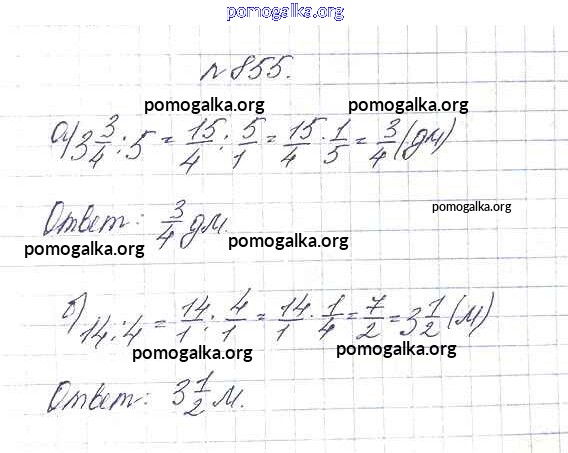 pomogalka.org
№855.
pomogalka.org pomogalka.org
а) 3 3/4 : 5 = 15/4 : 5/1 = 15/4 · 1/5 = 3/4 (дм)
pomogalka.org
Ответ: 3/4 дм.
pomogalka.org pomogalka.org
б) 14 : 4 = 14/1 : 4/1 = 14/1 · 1/4 = 7/2 = 3 1/2 (м)
pomogalka.org pomogalka.org
Ответ: 3 1/2 м.